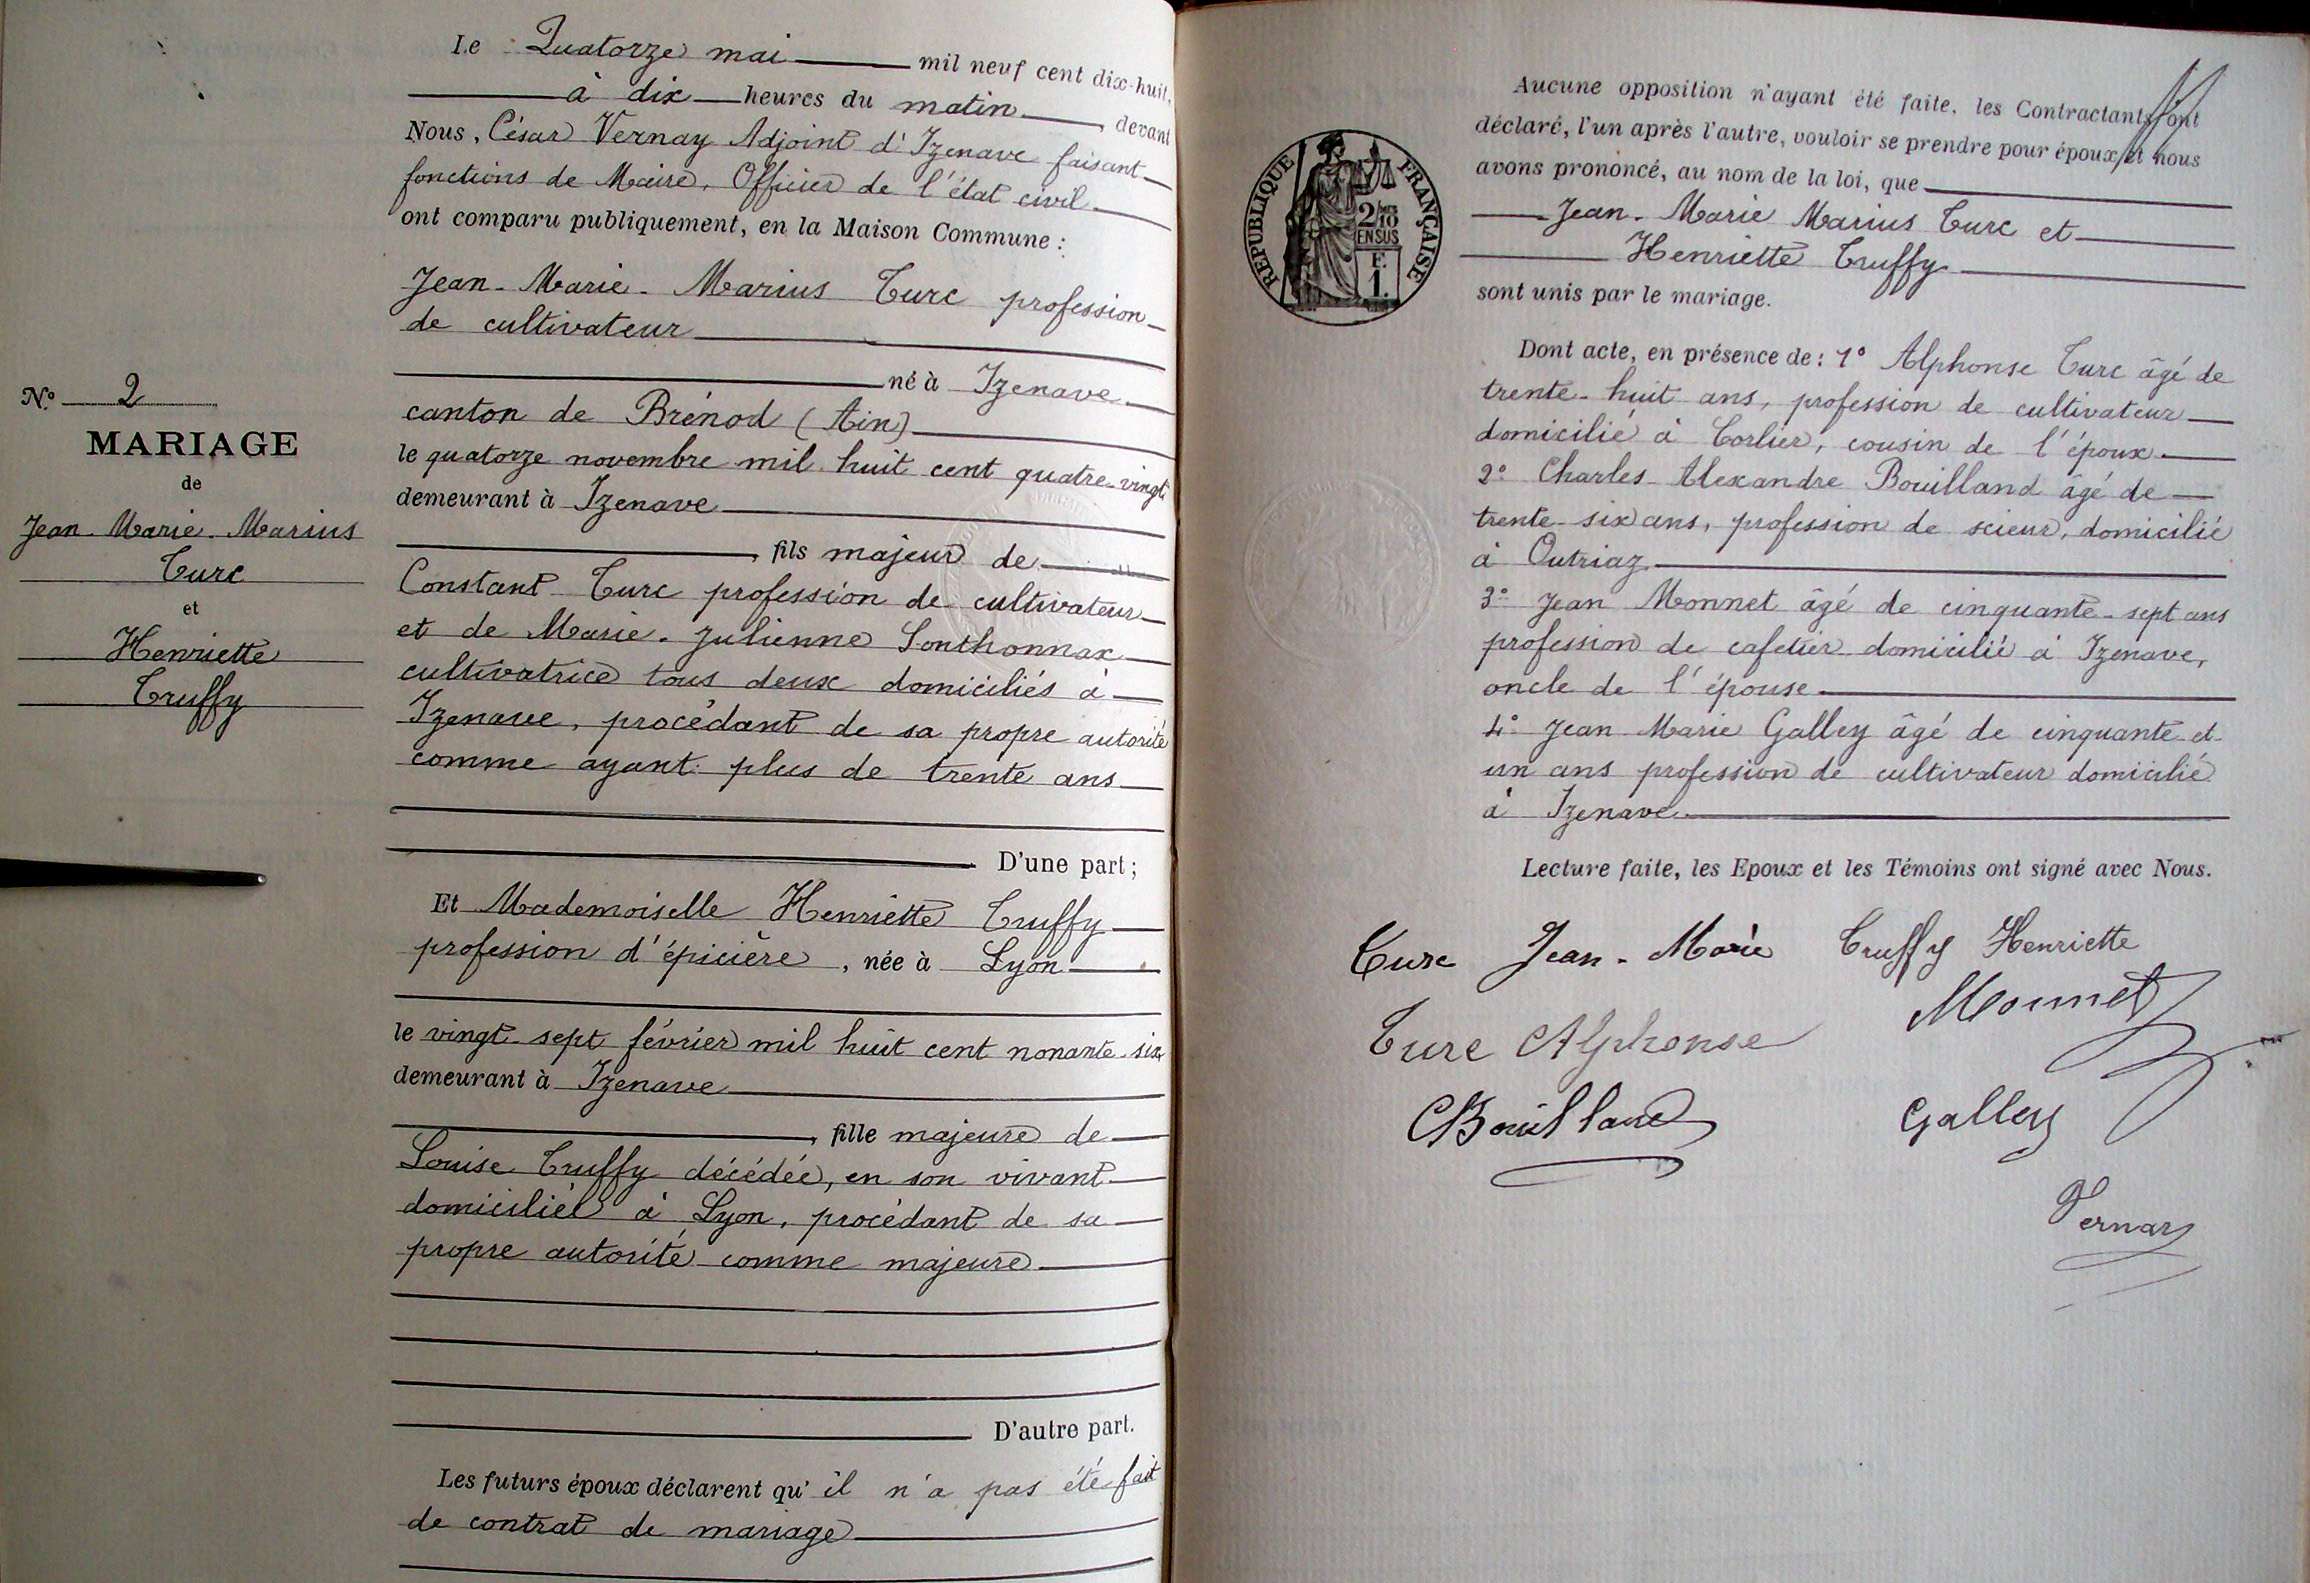 N.º 2
MARIAGE
de
Jean-Marie-Marius
Turc
et
Henriette
Truffy
Le Quatorze mai mil neuf cent dix-huit,
à dix heures du matin, devant
Nous, César Vernay Adjoint d'Izenave faisant
fonctions de Maire, Officier de l'état civil
ont comparu publiquement, en la Maison Commune :
Jean-Marie-Marius Turc profession
de cultivateur
né à Izenave
canton de Brénod (Ain)
le quatorze novembre mil huit cent quatre-vingt
demeurant à Izenave
, fils majeur de
Constant Turc profession de cultivateur
et de Marie-Julienne Sonthonnax
cultivatrice tous deux domiciliés à
Izenave, procédant de sa propre autorité
comme ayant plus de trente ans
D'une part ;
Et Mademoiselle Henriette Truffy
profession d'épicière, née à Lyon
le vingt-sept février mil huit cent nonante-six
demeurant à Izenave
, fille majeure de
Louise Truffy décédée, en son vivant
domiciliée à Lyon, procédant de sa
propre autorité comme majeure
D'autre part.
Les futurs époux déclarent qu'il n'a pas été fait
de contrat de mariage
RÉPUBLIQUE FRANÇAISE
2/10
EN SUS
F.
1.
Aucune opposition n'ayant été faite, les Contractants ont
déclaré, l'un après l'autre, vouloir se prendre pour époux, et nous
avons prononcé, au nom de la loi, que
Jean-Marie Marius Turc et
Henriette Truffy
sont unis par le mariage.
Dont acte, en présence de : 1º Alphonse Turc âgé de
trente-huit ans, profession de cultivateur
domicilié à Corlier, cousin de l'époux
2º Charles-Alexandre Bouilland âgé de
trente-six ans, profession de scieur, domicilié
à Outriaz
3º Jean Monnet âgé de cinquante-sept ans
profession de cafetier domicilié à Izenave,
oncle de l'épouse
4º Jean Marie Galley âgé de cinquante et
un ans profession de cultivateur domicilié
à Izenave
Lecture faite, les Epoux et les Témoins ont signé avec Nous.
Turc Jean-Marie Truffy Henriette
Monnet
Turc Alphonse
CBouilland Galley
Vernay